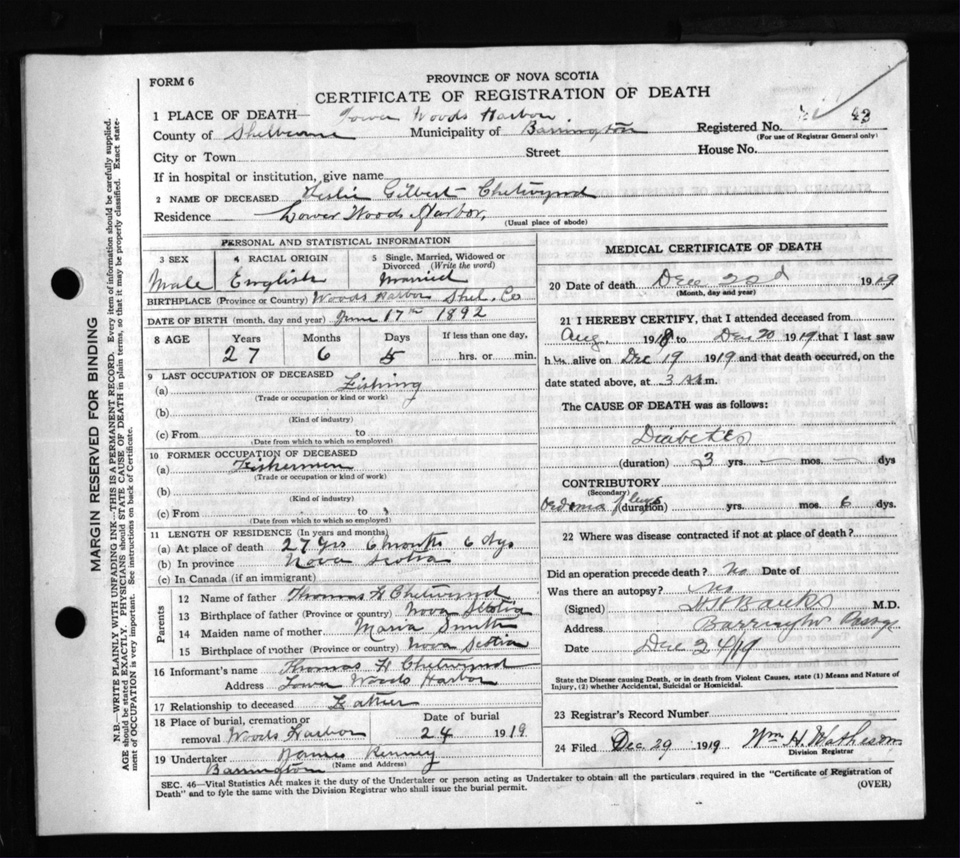 FORM 6
PROVINCE OF NOVA SCOTIA
CERTIFICATE OF REGISTRATION OF DEATH
1 PLACE OF DEATH— Lower Woods Harbor
County of Shelburne Municipality of Barrington Registered No. 43
(For use of Registrar General only)
City or Town Street House No.
If in hospital or institution, give name
2 NAME OF DECEASED Leslie Gilbert Chetwynd
Residence Lower Woods Harbor,
(Usual place of abode)
PERSONAL AND STATISTICAL INFORMATION
3 SEX 4 RACIAL ORIGIN 5 Single, Married, Widowed or Divorced (Write the word)
Male English Married
BIRTHPLACE (Province or Country) Woods Harbor Shel. Co
DATE OF BIRTH (month, day and year) June 17th 1892
8 AGE Years Months Days If less than one day,
27 6 5 hrs. or min.
9 LAST OCCUPATION OF DECEASED
(a) Fishing
(Trade or occupation or kind or work)
(b)
(Kind of industry)
(c) From to
(Date from which to which so employed)
10 FORMER OCCUPATION OF DECEASED
(a) Fishermen
(Trade or occupation or kind or work)
(b)
(Kind of industry)
(c) From to
(Date from which to which so employed)
11 LENGTH OF RESIDENCE (In years and months)
(a) At place of death 27 Yrs 6 months 6 dys
(b) In province Nova Scotia
(c) In Canada (if an immigrant)
Parents
12 Name of father Thomas H Chetwynd
13 Birthplace of father (Province or country) Nova Scotia
14 Maiden name of mother Maria Smith
15 Birthplace of mother (Province or country) Nova Scotia
16 Informant's name Thomas H Chetwynd
Address Lower Woods Harbor
17 Relationship to deceased Father
18 Place of burial, cremation or removal Woods Harbor Date of burial 24 1919
19 Undertaker James Kenney
(Name and Address)
Barrington
MEDICAL CERTIFICATE OF DEATH
20 Date of death Dec 22d 1919
(Month, day and year)
21 I HEREBY CERTIFY, that I attended deceased from
Aug, 1918 to Dec 20 1919 that I last saw
him alive on Dec 19 1919 and that death occurred, on the
date stated above, at 3 m.
The CAUSE OF DEATH was as follows:
Diabetes
(duration) 3 yrs. mos. dys
CONTRIBUTORY
(Secondary)
Oedema lungs (duration) yrs. mos 6 dys
22 Where was disease contracted if not at place of death?
Did an operation precede death? No Date of
Was there an autopsy? No
(Signed) Banks M.D.
Address Barrington Passg
Date Dec 24/19
State the Disease causing Death, or in death from Violent Causes, state (1) Means and Nature of Injury, (2) whether Accidental, Suicidal or Homicidal.
23 Registrar's Record Number
24 Filed Dec 29 1919 Wm H. Matheson
Division Registrar
SEC. 46—Vital Statistics Act makes it the duty of the Undertaker or person acting as Undertaker to obtain all the particulars required in the "Certificate of Registration of
Death" and to fyle the same with the Division Registrar who shall issue the burial permit. (OVER)
MARGIN RESERVED FOR BINDING
N.B.—WRITE PLAINLY WITH UNFADING INK—THIS IS A PERMANENT RECORD. Every item of information should be carefully supplied.
AGE should be stated EXACTLY. PHYSICIANS should STATE CAUSE OF DEATH in plain terms, so that it may be properly classified. Exact state-
ment of OCCUPATION is very important. See instructions on back of Certificate.